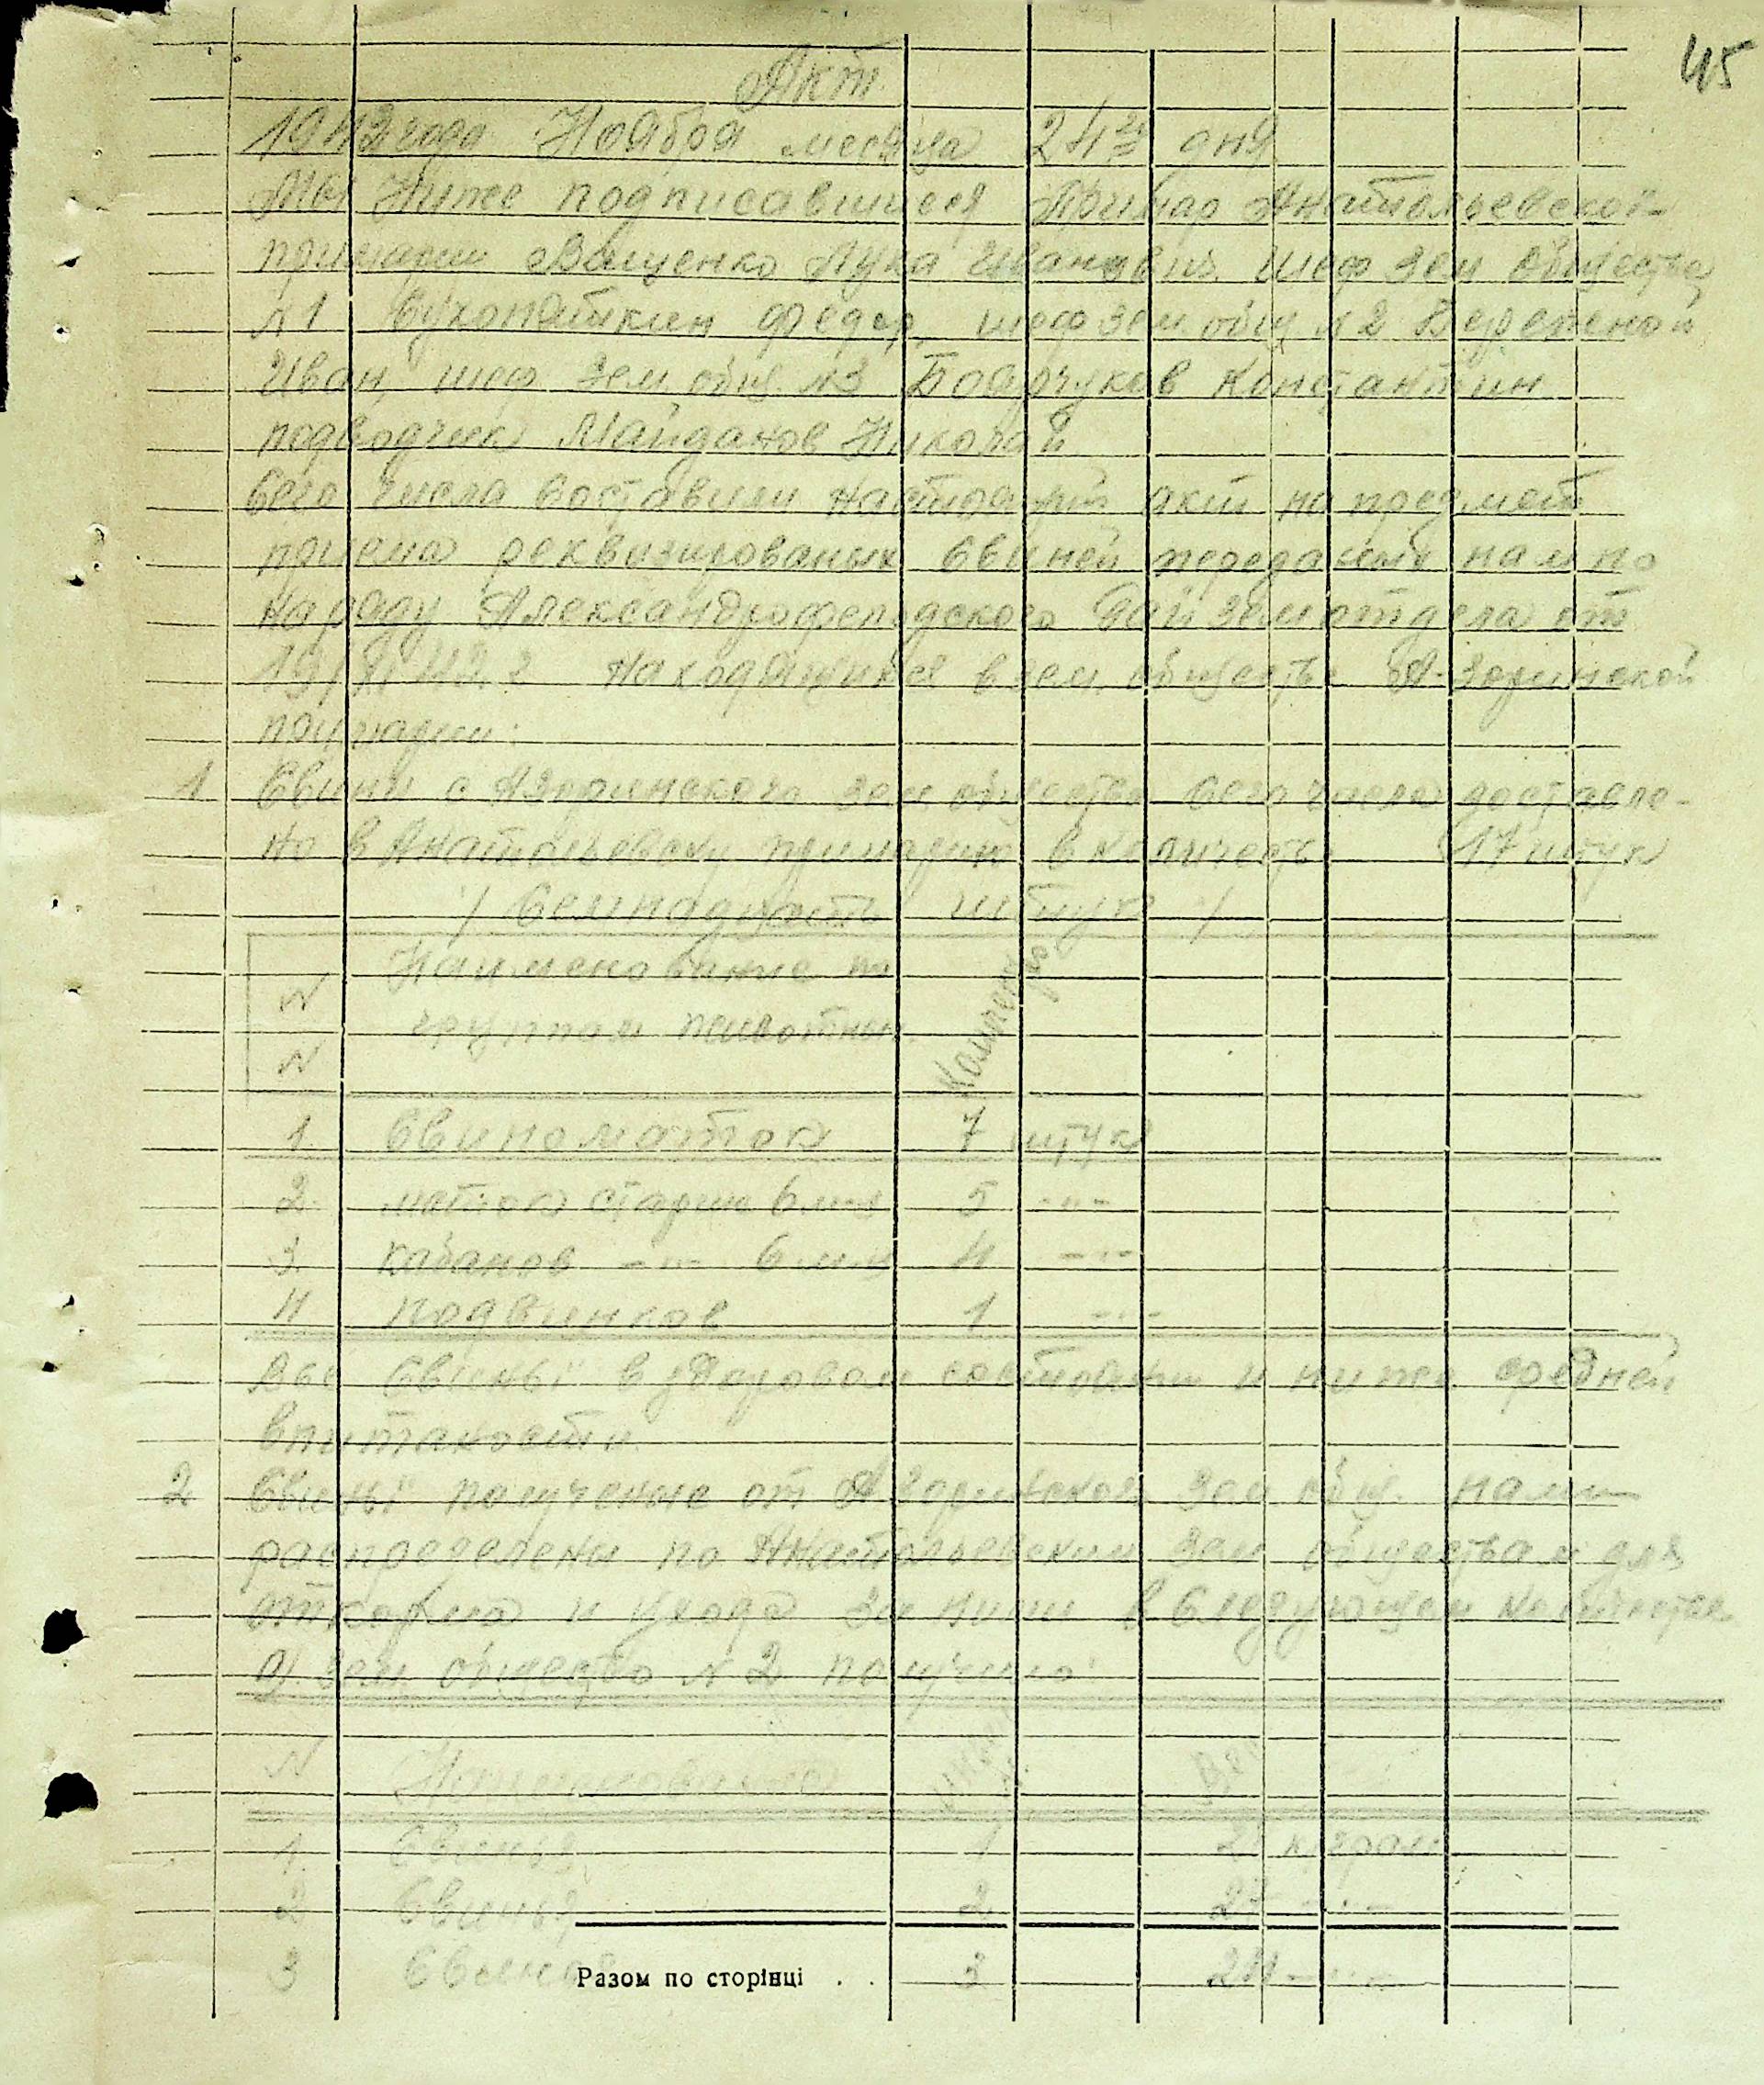 45
Акт
1942 года Ноября месяца 24го дня
Мы Ниже подписавшиеся Примар Анатольевской
примарии Ващенко Лука Иванович, шеф зем общества
N1 Сухопяткин Федор, шеф зем общ N2
Иван, шеф зем общ. N3 Константин
подводчик Майданов Николай
Сего числа составили настоящий акт на предмет
приема реквизированых свиней переданых нам по
наряду Александрофельдского Рай земотдела от
19/XI 42 г находящихся в зем. обществе А-Зоринской
примарии:
1 Свини с Азоринского зем общества сего числа доставле-
но в Анатольевску примарию в количестве 17 штук
/ Семнадцать штук /
N N Наименование по группам животных Количество
1. Свиноматок 7 штук
2. маток старше 6 м-в 5 -"-
3. кабанов -"- 6 м-в 4 -"-
4 подсвинков 1 -"-
Все Свиньї в здоровом состоянии и ниже средней
впитаности.
2 Свиньї полученые от А Зоринской зем общ. нами
распределены по Анатольевским зем обществам для
откорма и ухода за ними в следующем количестве
а). зем. общество N2 получило:
N Наименование Вес
1. Свинья 1 килграм
2 Свинья 2 27 -"-
3 Свинья 3 24 -"-
Разом по сторінці . .